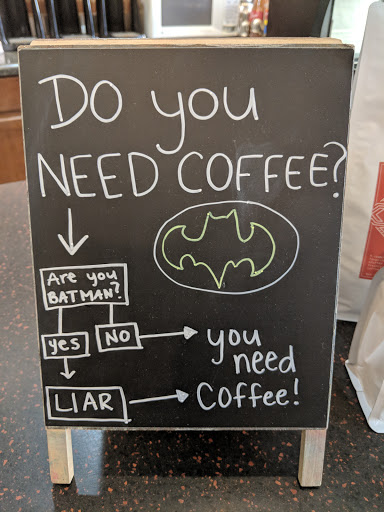 Do you
NEED COFFEE?
Are you
BATMAN?
yes
NO
you
need
Coffee!
LIAR